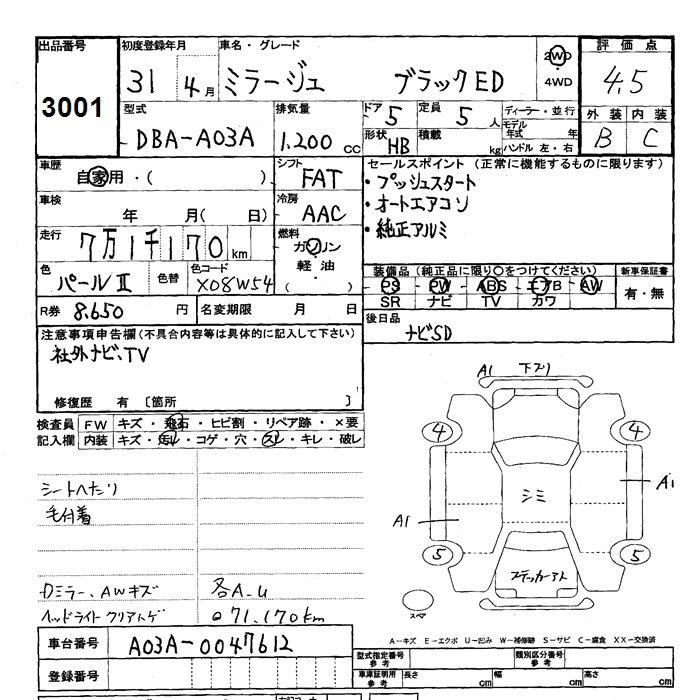 出品番号 初度登録年月 車名・グレード 評価点
3001 31 4月 ミラージュ ブラックED 2WD ・ 4WD 4.5
型式 排気量 ドア 5 定員 5人 ディーラー・並行 外装 内装
DBA-A03A 1.200cc 形状 HB 積載 kg モデル年式 年 ハンドル 左・右 B C
車歴 自家用・( ) シフト FAT セールスポイント (正常に機能するものに限ります)
車検 年 月( 日) 冷房 AAC ・プッシュスタート
・オートエアコン
走行 7万1千170km 燃料 ガソリン 軽油 ( ) ・純正アルミ
色 パールII 色替 色コード X08W54 装備品 (純正品に限り○をつけてください) 新車保証書
PS PW ABS エアB AW 有・無
R券 8,650円 名変期限 月 日 SR ナビ TV カワ
注意事項申告欄(不具合内容等は具体的に記入して下さい) 後日品
社外ナビ、TV ナビSD
修復歴 有 〔箇所 〕
検査員 FW キズ・飛石・ヒビ割・リペア跡・×要
記入欄 内装 キズ・汚レ・コゲ・穴・スレ・キレ・破レ
A1 下ズリ
4 4
シートへたり
毛付着
シミ
A1
A1
5 5
ステッカーアト
スペア
Dミラー、AWキズ 各A-U
ヘッドライトクリアハゲ 71,170km
A-キズ E-エクボ U-凹み W-補修跡 S-サビ C-腐食 XX-交換済
車台番号 A03A-0047612
型式指定番号 参考 類別区分番号 参考
登録番号 車庫証明用 参考 長さ cm 幅 cm 高さ cm